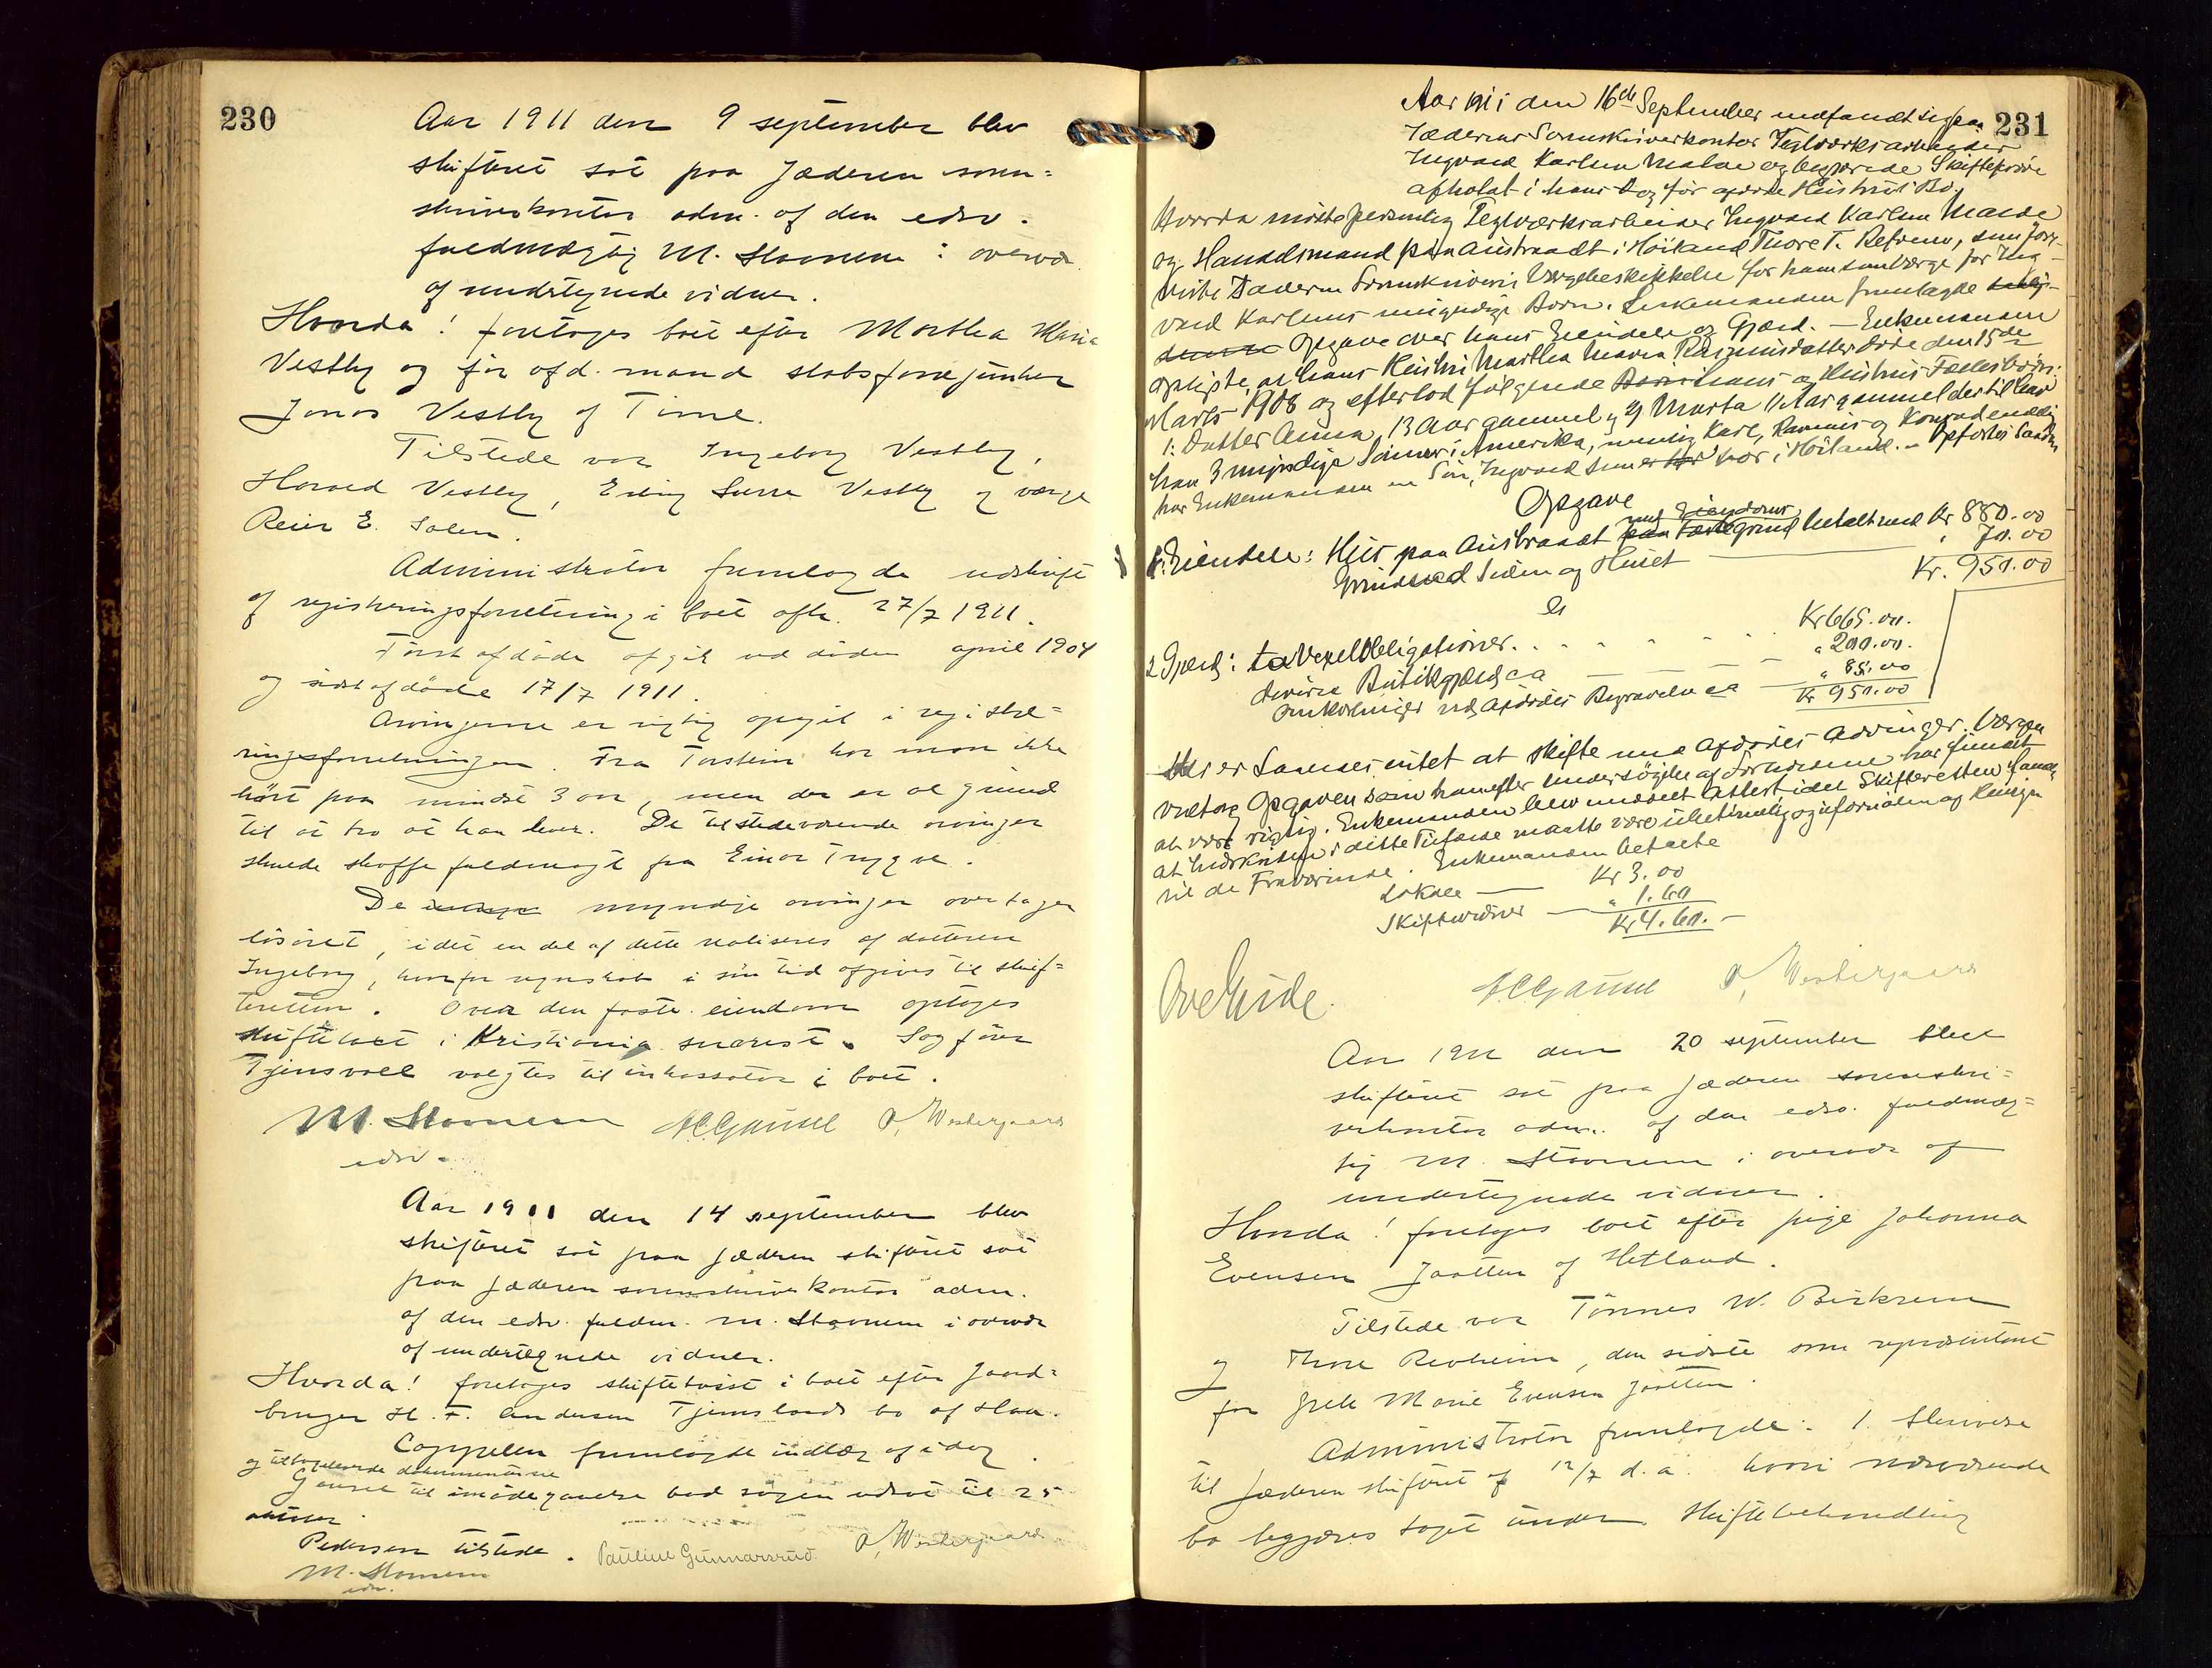 230
Aar 1911 den 9 september blev
skifteret sat paa Jæderen soren=
skriverkontor adm. af den edsv.
fuldmægtig M. Stavnem i overvær
af undertegnede vidner.
Hvorda! foretoges boet efter Martha Maria
Vestly og før afd. mand stabsfanejunker
Jonas Vestly af Time.
Tilstede var Ingeborg Vestly,
Harald Vestly, Erling Vestly og værge
Reier E. Solem.
Administrator fremlagde udskrift
af registreringsforretning i boet afh. 27/7 1911.
Først afdøde afgik ved døden april 1904
og sidst afdøde 17/7 1911.
Arvingerne er rigtig opgit i registre=
ringsforretningen. Fra Torstein har man ikke
hørt paa mindst 3 aar, men der er al grund
til at tro at han lever. De tilstedeværende arvinger
skulde skaffe fuldmagt fra Einar Trygve.
De myndige arvinger overtager
løsøret, idet en del af dette realiseres af datteren
Ingeborg, hvorfor regnskab i sin tid afgives til skif=
teretten. Over den faste eiendom optages
skiftetakst i Kristiania snarest. Sagfører
Tjensvoll valgtes til inkassator i boet.
M. Stavnem A C Gausel O. Westergaard
edsv.
Aar 1911 den 14 september blev
skifteret sat paa Jæderen skifteret sat
paa Jæderen sorenskriverkontor adm.
af den edsv. fuldm. M. Stavnem i overvær
af undertegnede vidner.
Hvorda! foretoges skiftetvist i boet efter gaard=
bruger H. F. Andersen Tjemslands bo af Haa.
Cappelen fremlagde indlæg af idag
og tilbageleverede dokumenterne
Gausel til imødegaaelse bad sagen udsat til 25
Pedersen tilstede. Pauline Gunnarsrud O. Westergaard
M. Stavnem
edsv.
231
Aar 1911 den 16de September indfandt sig paa
Jæderens Sorenskriverkontor Teglværksarbeider
Ingvald Karlsen Malde og begjærede Skifteprøve
afholdt i hans og før afdøde Hustrus Bo.
Hvorda mødte personlig Teglværksarbeider Ingvald Karlsen Malde
og Handelsmand paa Austraadt i Høiland Thore T. Refsnes, som fore-
viste Jæderens Sorenskriveris Værgebeskikkelse for ham som Værge for Ing-
vald Karlsens umyndige Børn. Enkemanden fremlagde
Opgave over hans Eiendele og Gjæld. - Enkemanden
oplyste at hans Hustru Martha Maria Rasmusdatter døde den 15de
Marts 1908 og efterlod følgende hans og Hustrus Fællesbørn:
1: Datter Anna, 13 Aar gammel, og 2) Marta 11 Aar gammel dertil har
han 3 myndige Sønner i Amerika, nemlig Karl, Rasmus og Konrad endelig
har Enkemanden en Søn, Ingvald som er bor i Høiland.
Opgave
1. Eiendele: Hus paa Austraadt med Eiendoms grund betalt med Kr 880.00
Grundved Siden og Huset " 70.00
Kr. 950.00
2 Gjæld: to Vexelobligationer. Kr 665.00.
diverse Butikgjæld ca " 200.00.
Omkostninger ved Afdødes Begravelse ca " 85.00
Kr 950.00
Her er saaledes intet at skifte med Afdødes Arvinger. Værgen
vedtog Opgaven som han efter Undersøgelse af Forholdene har fundet
at være rigtig. Enkemanden blev meddelt Attest idet Skifteretten fandt
at Indskriden i dette Tilfælde maatte være ubetimelig og uformaalen og Hensyn
til de Fraværende. Enkemanden betalte
Lokale Kr 3.00
Skiftevidner " 1.60
Kr 4.60.-
Ove Eide. A C Gausel O. Westergaard
Aar 1911 den 20 september blev
skifteret sat paa Jæderen sorenskri=
verkontor adm. af den edsv. fuldmæg=
tig M. Stavnem i overvær af
undertegnede vidner.
Hvorda! foretoges boet efter pige Johanna
Evensen Jaatten af Hetland.
Tilstede var Tønnes W. Birkrem
og Thore Revheim, den sidste som repræsentant
for Grete Marie Evensen Jaatten.
Administrator fremlagde: 1. Skrivelse
til Jæderen skifteret af 12/7 d. a. hvori nærværende
bo begjæres taget under skiftebehandling